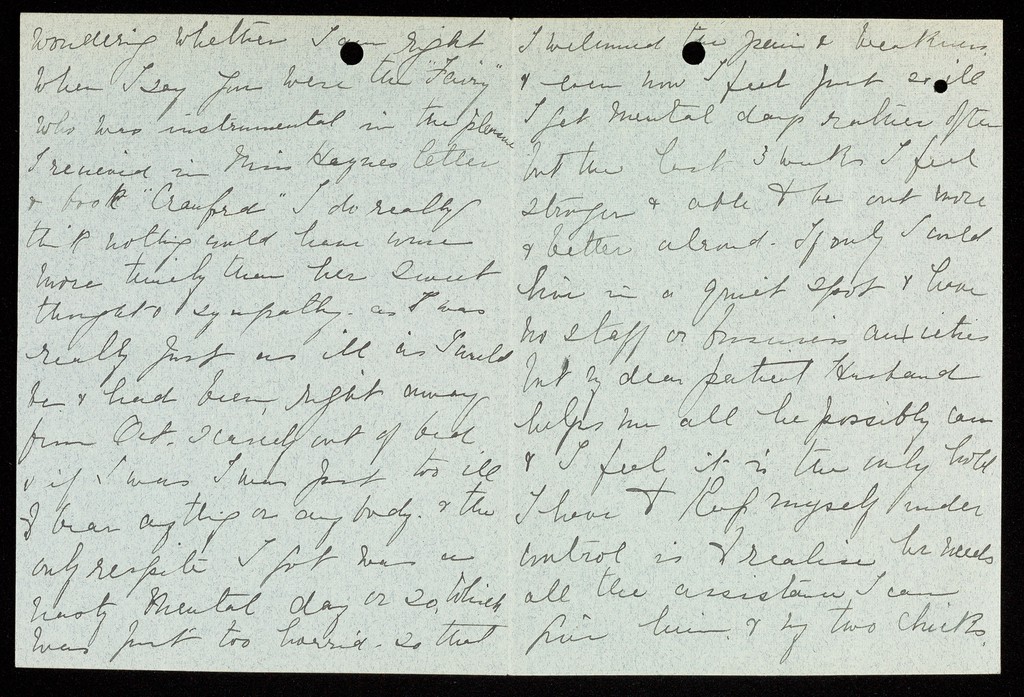 wondering whether I am right
when I say you were the "Fairy"
who was instrumental in the pleasure
I received in Miss Haynes letter
& book "Cranford" I do really
think nothing could have come
more timely than her sweet
thought & sympathy. as I was
really just as ill as I could
be & had been, right away
from Oct. scarcely out of bed
& if I was I was just too ill
to bear anything or anybody. & the
only respite I got was a
nasty mental day or so, which
was just too horrid. so that
I welcomed the pain & weakness.
& even now I feel just so ill
I get mental days rather often
but the last 3 weeks I feel
stronger & able to be out more
& better abroad. If only I could
live in a quiet spot & have
no staff or business anxieties
but my dear patient Husband
helps me all he possibly can
& I feel it is the only hold
I have to keep myself under
control is to realise he needs
all the assistance I can
give him. & my two chicks.